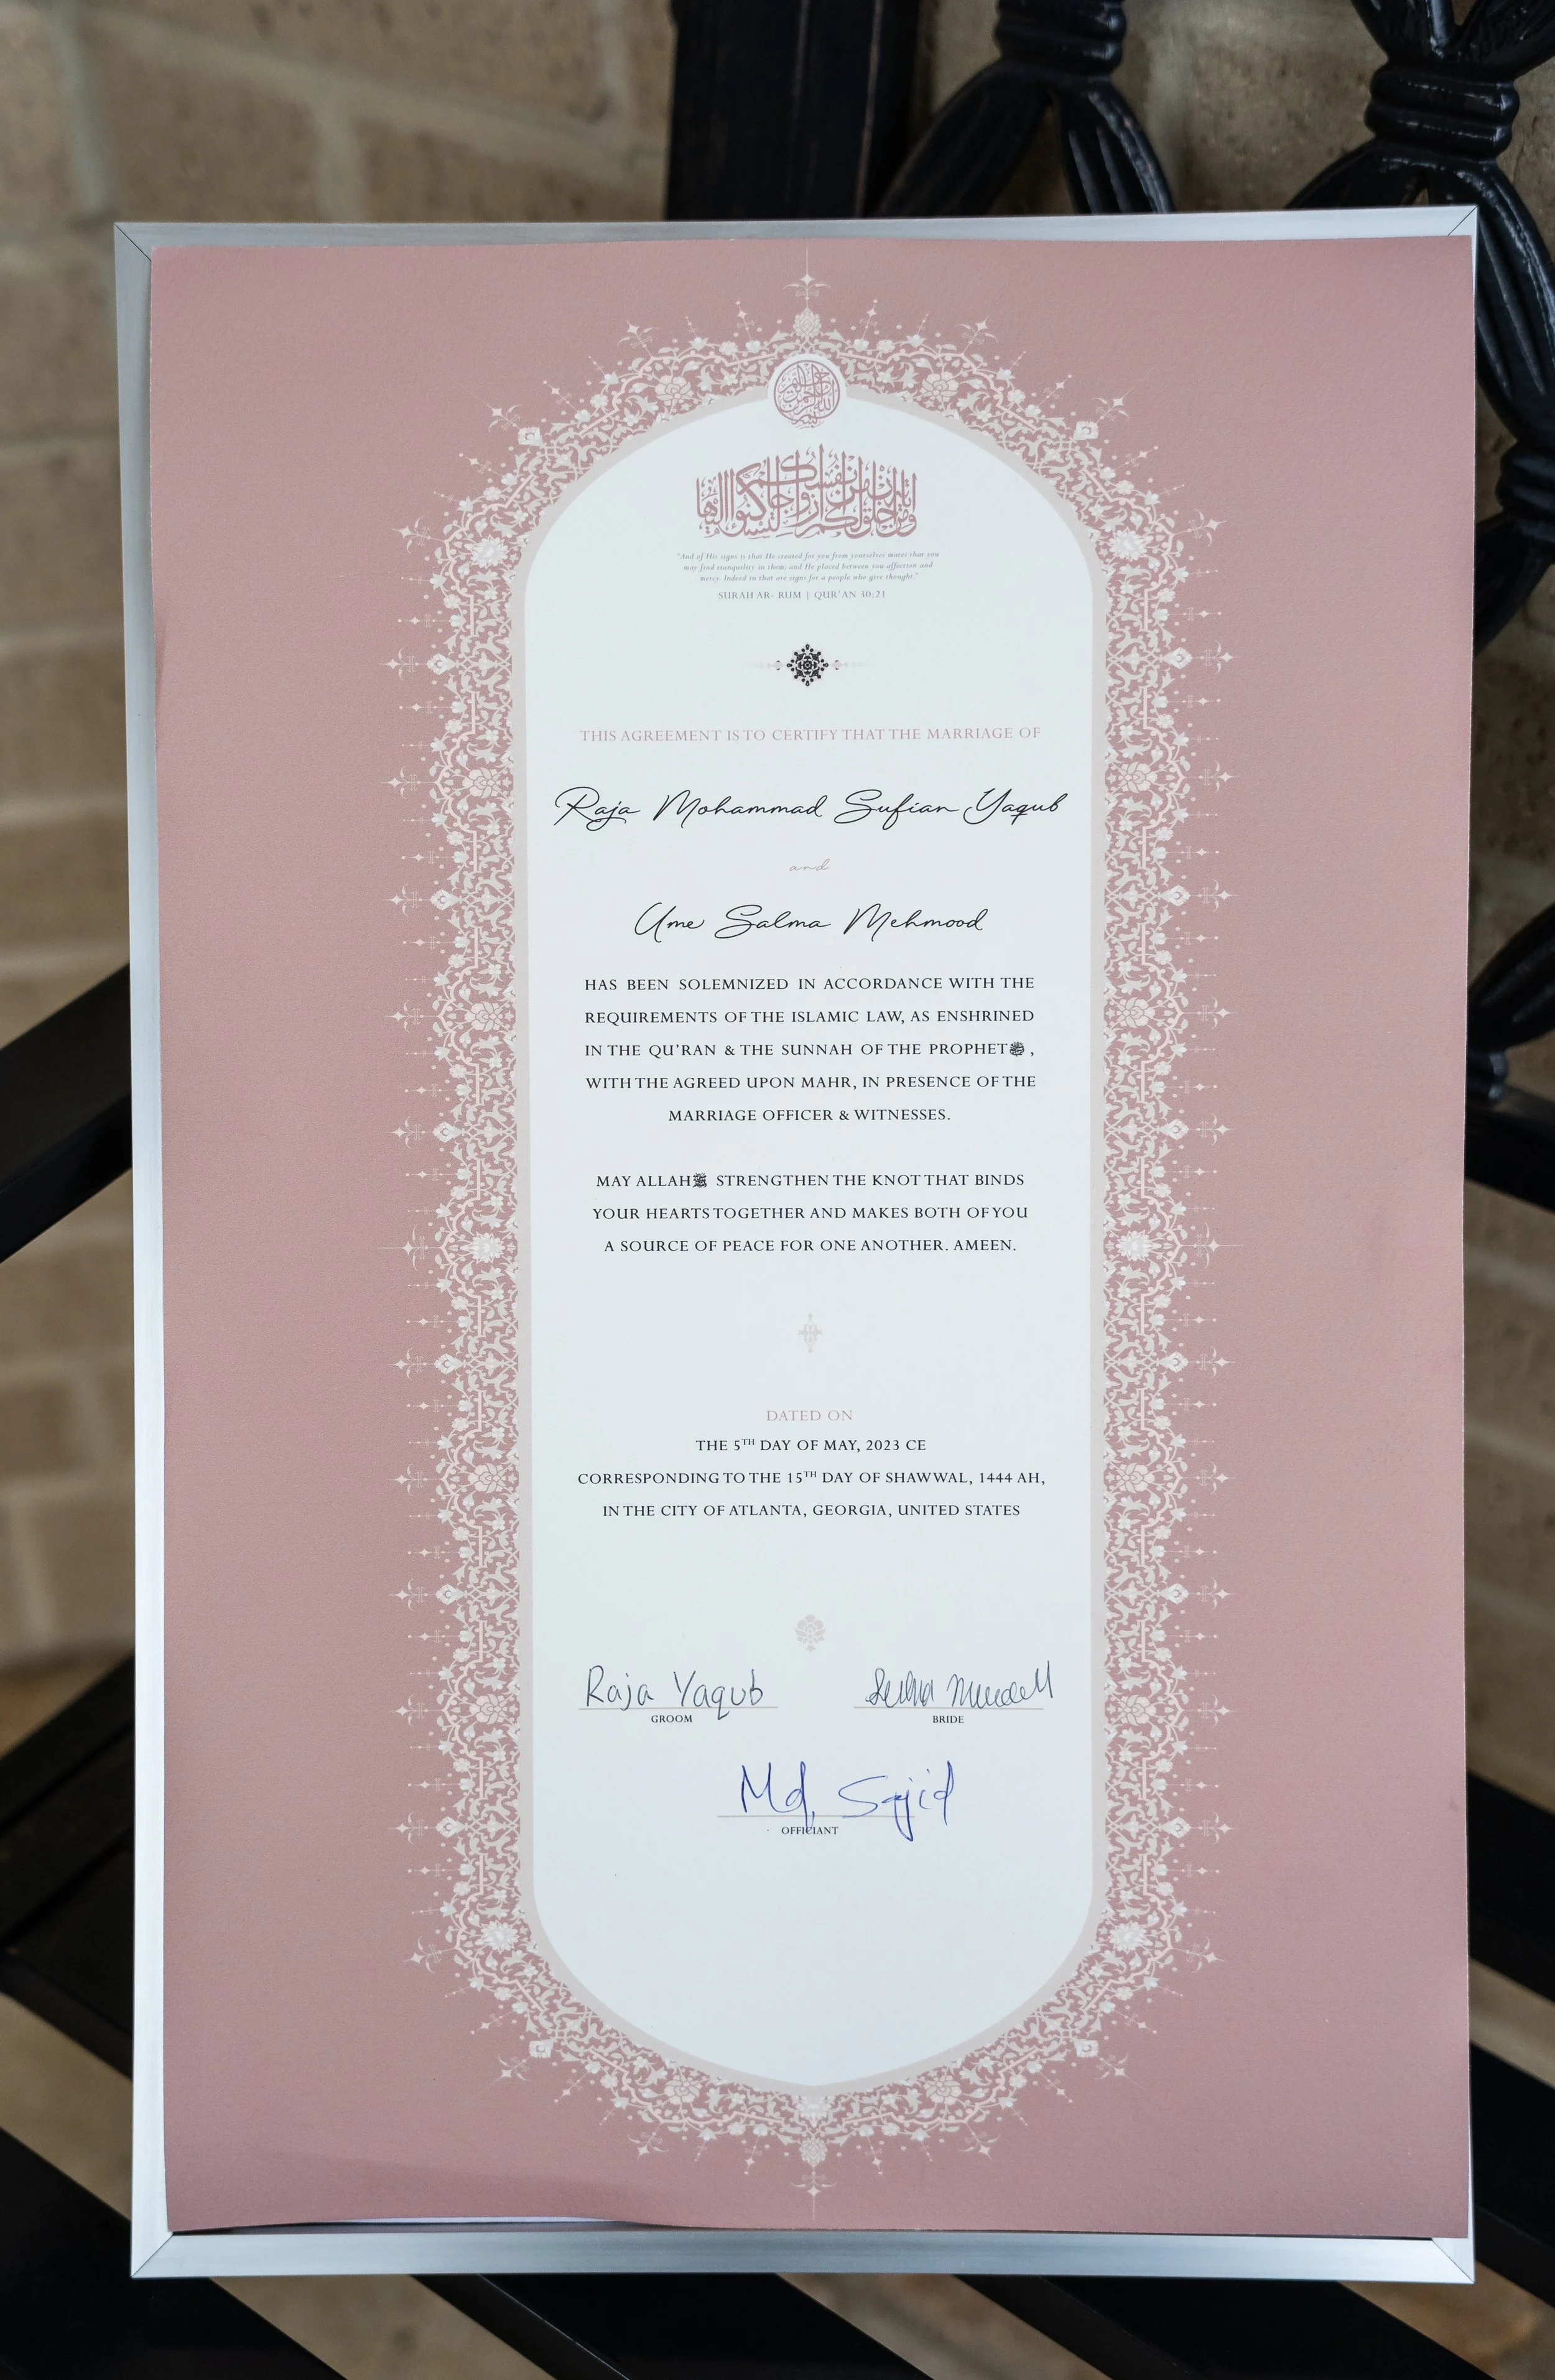 بسم الله الرحمن الرحيم
ومن آياته أن خلق لكم من أنفسكم أزواجا لتسكنوا إليها
"And of His signs is that He created for you from yourselves mates that you
may find tranquility in them; and He placed between you affection and
mercy. Indeed in that are signs for a people who give thought."
SURAH AR- RUM | QUR'AN 30:21
THIS AGREEMENT IS TO CERTIFY THAT THE MARRIAGE OF
Raja Mohammad Sufian Yaqub
and
Ume Salma Mehmood
HAS BEEN SOLEMNIZED IN ACCORDANCE WITH THE
REQUIREMENTS OF THE ISLAMIC LAW, AS ENSHRINED
IN THE QU'RAN & THE SUNNAH OF THE PROPHETﷺ ,
WITH THE AGREED UPON MAHR, IN PRESENCE OF THE
MARRIAGE OFFICER & WITNESSES.
MAY ALLAH STRENGTHEN THE KNOT THAT BINDS
YOUR HEARTS TOGETHER AND MAKES BOTH OF YOU
A SOURCE OF PEACE FOR ONE ANOTHER. AMEEN.
DATED ON
THE 5TH DAY OF MAY, 2023 CE
CORRESPONDING TO THE 15TH DAY OF SHAWWAL, 1444 AH,
IN THE CITY OF ATLANTA, GEORGIA, UNITED STATES
Raja Yaqub
GROOM
BRIDE
Md, Sajid
OFFICIANT